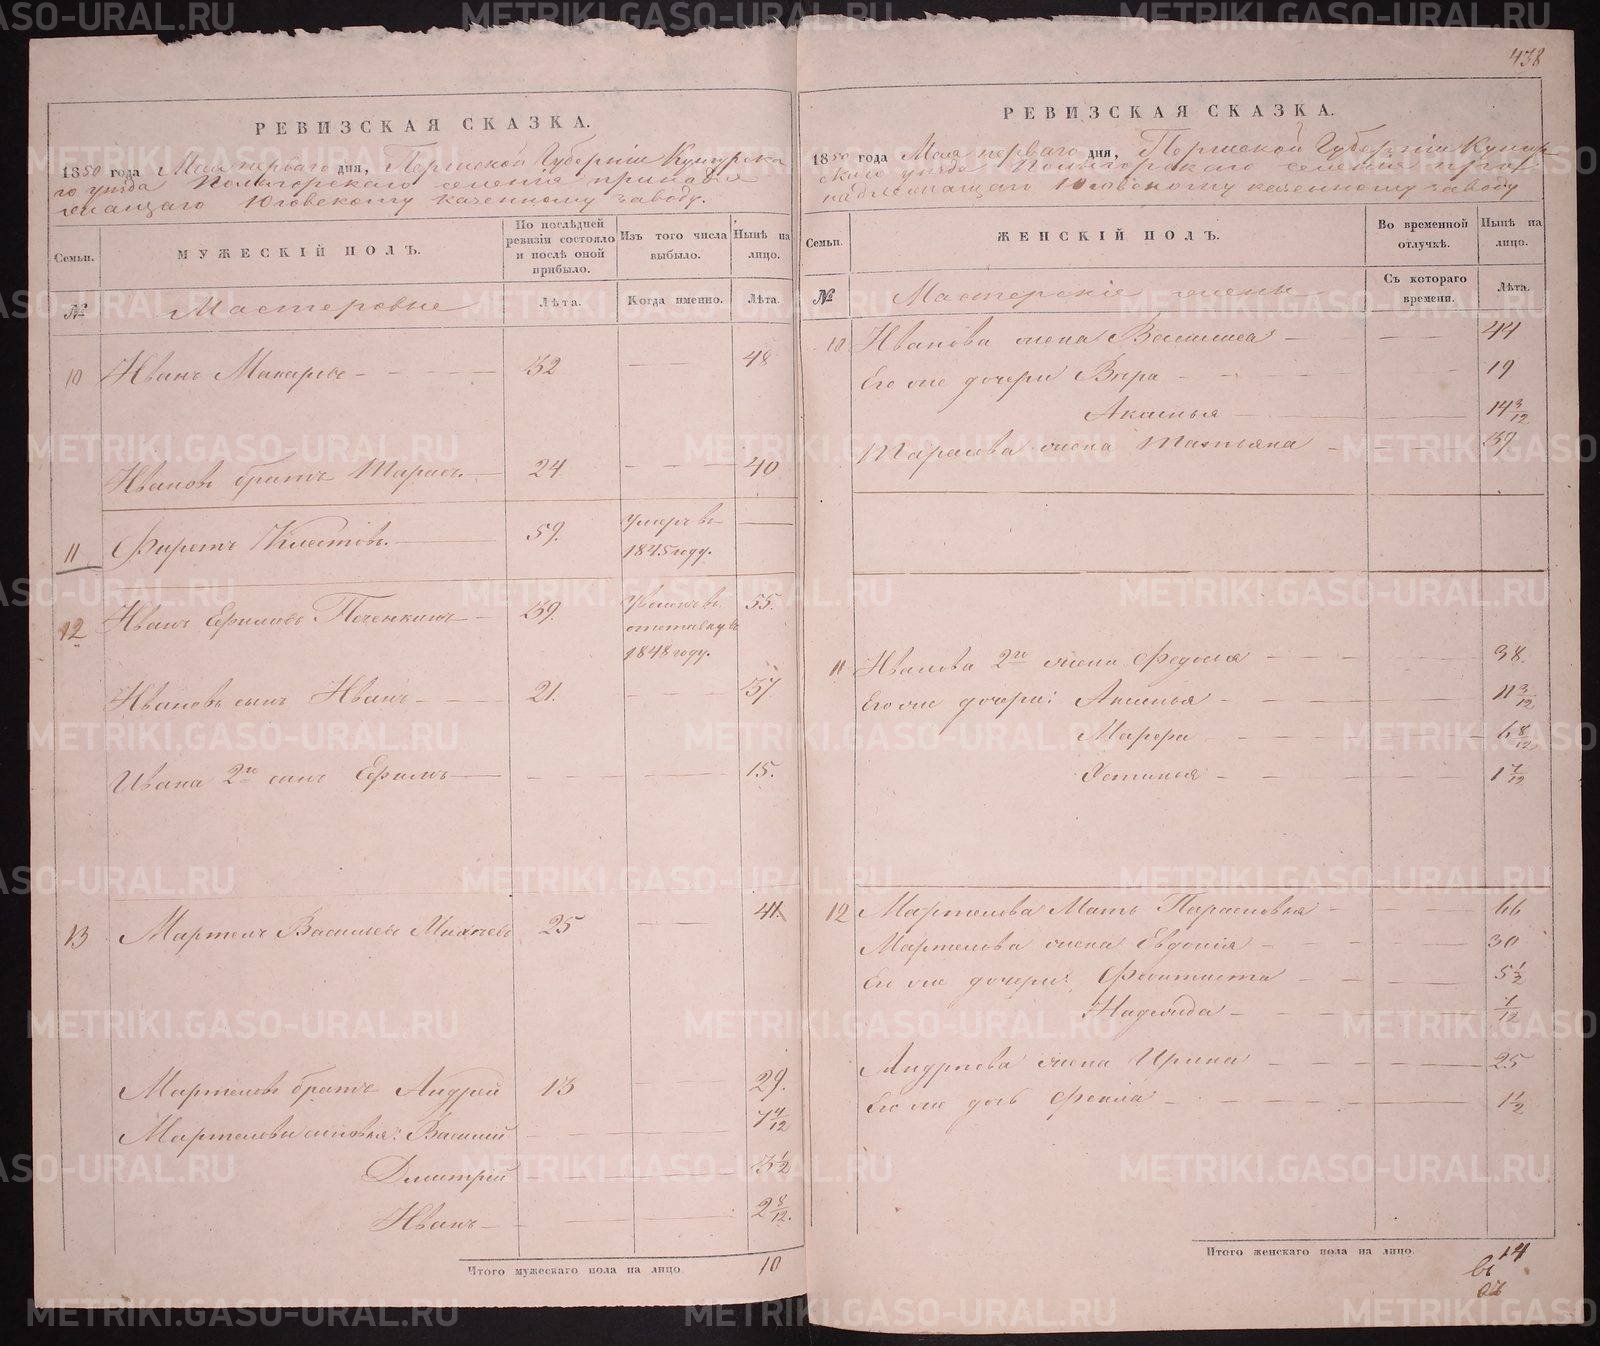 438
РЕВИЗСКАЯ СКАЗКА.
1850 года Мая перваго дня, Пермской Губерніи Кунгурска
го уѣзда селенія принадле
жащаго Юговскому казенному заводу.
Семьи.
МУЖЕСКІЙ ПОЛЪ.
По послѣдней ревизіи состояло и послѣ оной прибыло.
Изъ того числа выбыло.
Нынѣ на лицо.
№
Мастеровые
Лѣта.
Когда именно.
Лѣта.
10 Иванъ Макаровъ 32 48
Ивановъ братъ Тарасъ. 24 40
11 59. умеръ въ
1845 году.
12 Иванъ Ефимовъ Печенкинъ 39. Уволенъ въ 55.
отставку въ
1848 году.
Ивановъ сынъ Иванъ 21. 37
Ивана 2го сынъ Ефимъ 15.
13 Мартемъ Васильевъ 25 41.
Мартемовъ братъ Андрей 13 29.
Мартемовы сыновья: Василий 7 4/12
Дмитрій 3 1/2
Иванъ 2 8/12.
Итого мужескаго пола на лицо. 10
РЕВИЗСКАЯ СКАЗКА.
1850 года Мая перваго дня, Пермской Губерніи Кунгур
скаго уѣзда селенія при
надлежащаго Юговскому казенному заводу
Семьи.
ЖЕНСКІЙ ПОЛЪ.
Во временной отлучкѣ.
Нынѣ на лицо.
№
Мастерскіе жены
Съ котораго времени.
Лѣта.
10 Иванова жена Василиса 44
Его же дочери Вѣра 19
Аксинья 14 3/12
Тарасова жена Татьяна 39
11 Иванова 2го жена Федосья 38.
Его же дочери: Аксинья 11 3/12
Марфа 6 8/12
Устинья 1 7/12
12 Мартемова Мать Парасковья 66
Мартемова жена Евдокія 30
Его же дочери: Феоктиста 5 1/2
Надежда 7/12
Андреева жена Ирина 25
Его же дочь Фекла 1 1/2
Итого женскаго пола на лицо. 14
METRIKI.GASO-URAL.RU